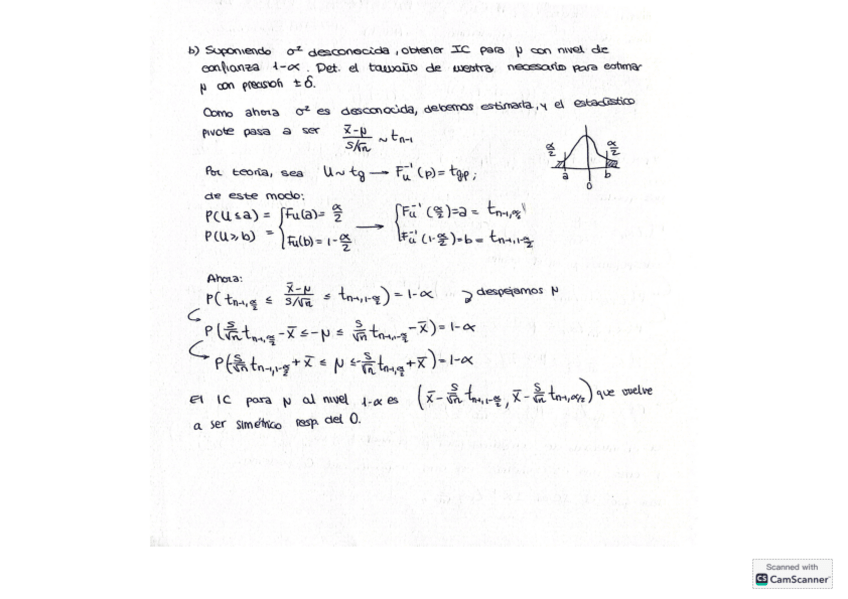 b) Suponiendo σ² desconocida, obtener IC para μ con nivel de
confianza 1-α. Det. el tamaño de muestra necesario para estimar
μ con precisión ± δ.
Como ahora σ² es desconocida, debemos estimarla, y el estadístico
pivote pasa a ser (x̄-μ)/(s/√n) ~ t_{n-1}
α/2 α/2
a 0 b
Por teoría, sea U ~ t_g → F_u^{-1}(p) = t_{g,p};
de este modo:
P(U ≤ a) = { F_u(a) = α/2 → { F_u^{-1}(α/2) = a = t_{n-1,α/2}
P(U ≥ b) = { F_u(b) = 1-α/2 { F_u^{-1}(1-α/2) = b = t_{n-1,1-α/2}
Ahora:
P(t_{n-1,α/2} ≤ (x̄-μ)/(s/√n) ≤ t_{n-1,1-α/2}) = 1-α despejamos μ
P(s/√n t_{n-1,α/2} - x̄ ≤ -μ ≤ s/√n t_{n-1,1-α/2} - x̄) = 1-α
P(-s/√n t_{n-1,1-α/2} + x̄ ≤ μ ≤ -s/√n t_{n-1,α/2} + x̄) = 1-α
El IC para μ al nivel 1-α es (x̄ - s/√n t_{n-1,1-α/2}, x̄ - s/√n t_{n-1,α/2}) que vuelve
a ser simétrico resp. del 0.
Scanned with
CS CamScanner